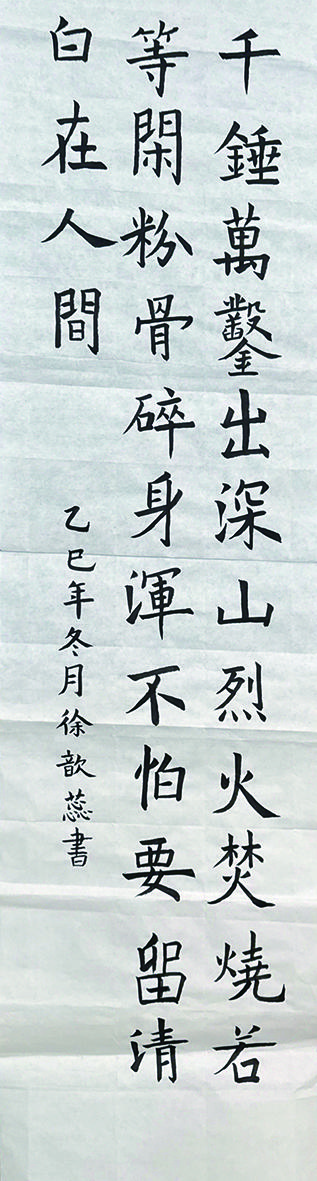 千錘萬鑿出深山烈火焚燒若
等閑粉骨碎身渾不怕要留清
白在人間
乙巳年冬月徐歆蕊書